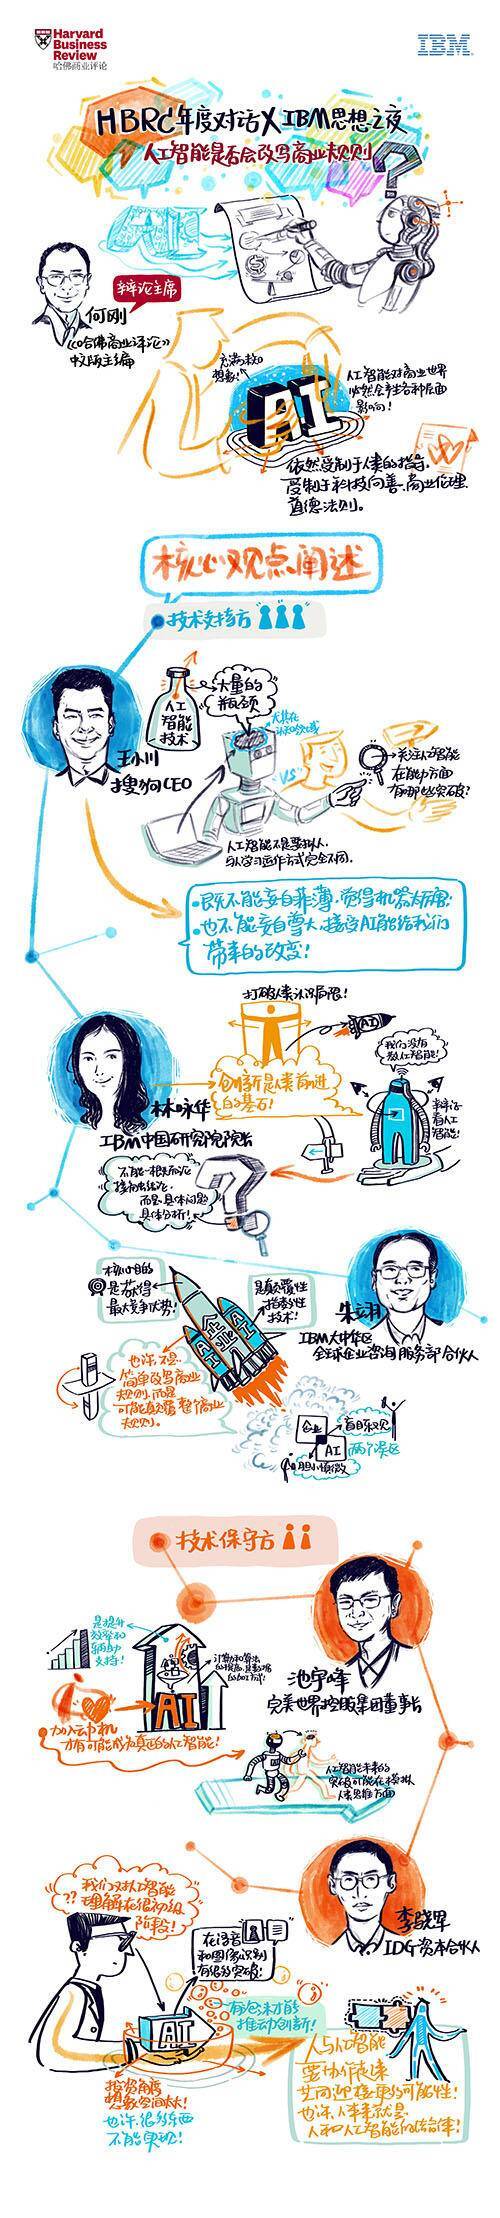 Harvard
Business
Review
哈佛商业评论
IBM
HBRC年度对话X IBM思想之夜
人工智能是否会改写商业规则
?
AI
辩论主席
何刚
《哈佛商业评论》
中文版主编
充满
想象!
AI
人工智能对商业世界
必然会产生各种层面
影响!
依然受制于人类的指导,
受制于科技向善、商业伦理、
道德法则。
核心观点阐述
技术支持方
人工
智能
技术
大量的
瓶颈
尤其在
认知领域
王小川
搜狗CEO
"VS"
关注人工智能
在能力方面
有哪些突破?
人工智能不是要拟人,
与人学习运作方式完全不同.
既不能妄自菲薄,觉得机器太厉害;
也不能妄自尊大,接受AI能给我们
带来的改变!
打破人类认识局限!
AI
我们没有
人工智能!
创新是人类前进
的基石!
林咏华
IBM中国研究院院长
辩论
看人工
智能!
不能一概而论
而是具体问题
具体分析!
核心目的
是获得
最大竞争优势!
是颠覆性
指数性
技术!
AI
企业
AI
朱翊
IBM大中华区
全球企业咨询服务部合伙人
也许不是
简单改写商业
规则,而是
可能颠覆整个商业
规则。
企业
盲目乐观
AI
两个误区
胆小慎微
技术保守方
是提升
效率和
辅助
支持!
AI
池宇峰
完美世界控股集团董事长
加入动机
才有可能成为真正的人工智能!
人工智能未来的
突破可能在模拟
人类思维方面
我们对人工智能
??理解在很初级
阶段!
在语音
和图像识别
有很多突破!
李骁军
IDG资本合伙人
AI
有泡沫才能
推动创新!
投资角度
想象空间太大!
也许,很多东西
不能实现!
人与人工智能
要协作起来
共同迎接更多可能性!
也许,未来就是
人和人工智能的结合体!